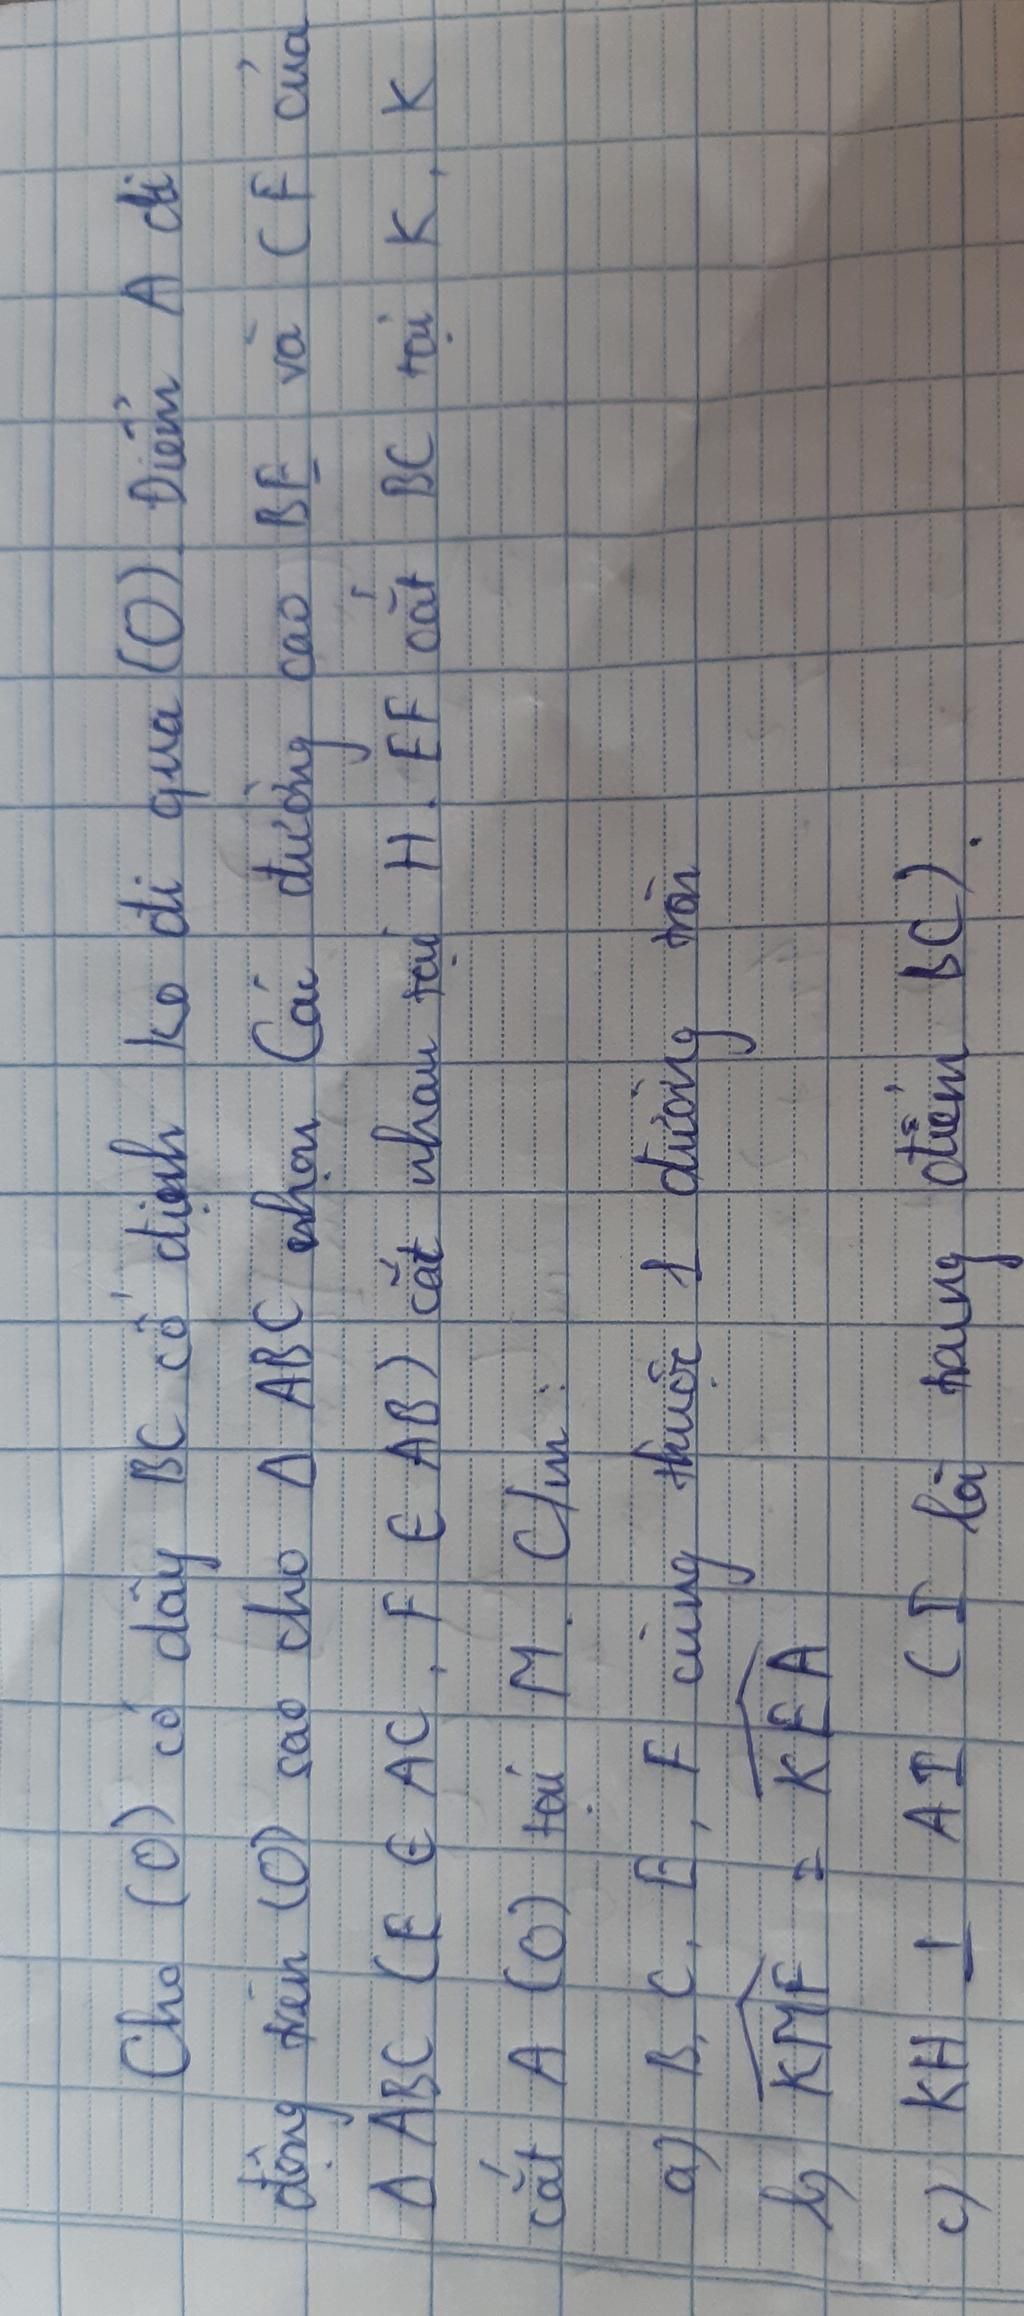 Cho (O) có dây BC cố định ko đi qua (O). Điểm A di
động trên (O) sao cho Δ ABC nhọn. Các đường cao BE và CF của
Δ ABC (E ∈ AC, F ∈ AB) cắt nhau tại H. EF cắt BC tại K, K
cắt A (O) tại M. C/m:
a) B, C, E, F cùng thuộc 1 đường tròn
b) \widehat{KMF} = \widehat{KEA}
c) KH ⊥ AI (I là trung điểm BC).